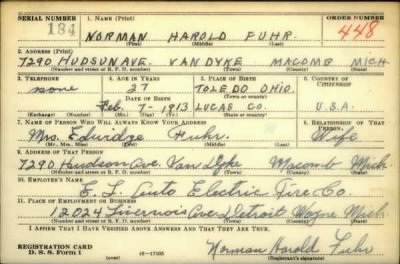 SERIAL NUMBER 1. NAME (Print) ORDER NUMBER
184 NORMAN HAROLD FUHR. 448
(First) (Middle) (Last)
2. ADDRESS (Print)
7290 HUDSON AVE. VAN DYKE MACOMB MICH
(Number and street or R. F. D. number) (Town) (County) (State)
3. TELEPHONE 4. AGE IN YEARS 5. PLACE OF BIRTH 6. COUNTRY OF CITIZENSHIP
none 27 TOLEDO OHIO.
DATE OF BIRTH (Town or county)
Feb. 7-1913 LUCAS CO. U.S.A.
(Exchange) (Number) (Mo.) (Day) (Yr.) (State or country)
7. NAME OF PERSON WHO WILL ALWAYS KNOW YOUR ADDRESS 8. RELATIONSHIP OF THAT PERSON
Mrs. Fuhr. Wife
(Mr., Mrs., Miss) (First) (Middle) (Last)
9. ADDRESS OF THAT PERSON
7290 Hudson Ave. Van Dyke Macomb Mich
(Number and street or R. F. D. number) (Town) (County) (State)
10. EMPLOYER'S NAME
E. L. Auto Electric Fire Co.
11. PLACE OF EMPLOYMENT OR BUSINESS
12024 Livernois Ave. Detroit Wayne Mich.
(Number and street or R. F. D. number) (Town) (County) (State)
I AFFIRM THAT I HAVE VERIFIED ABOVE ANSWERS AND THAT THEY ARE TRUE.
REGISTRATION CARD
D. S. S. Form 1 16-17105 Norman Harold Fuhr
(Registrant's signature)